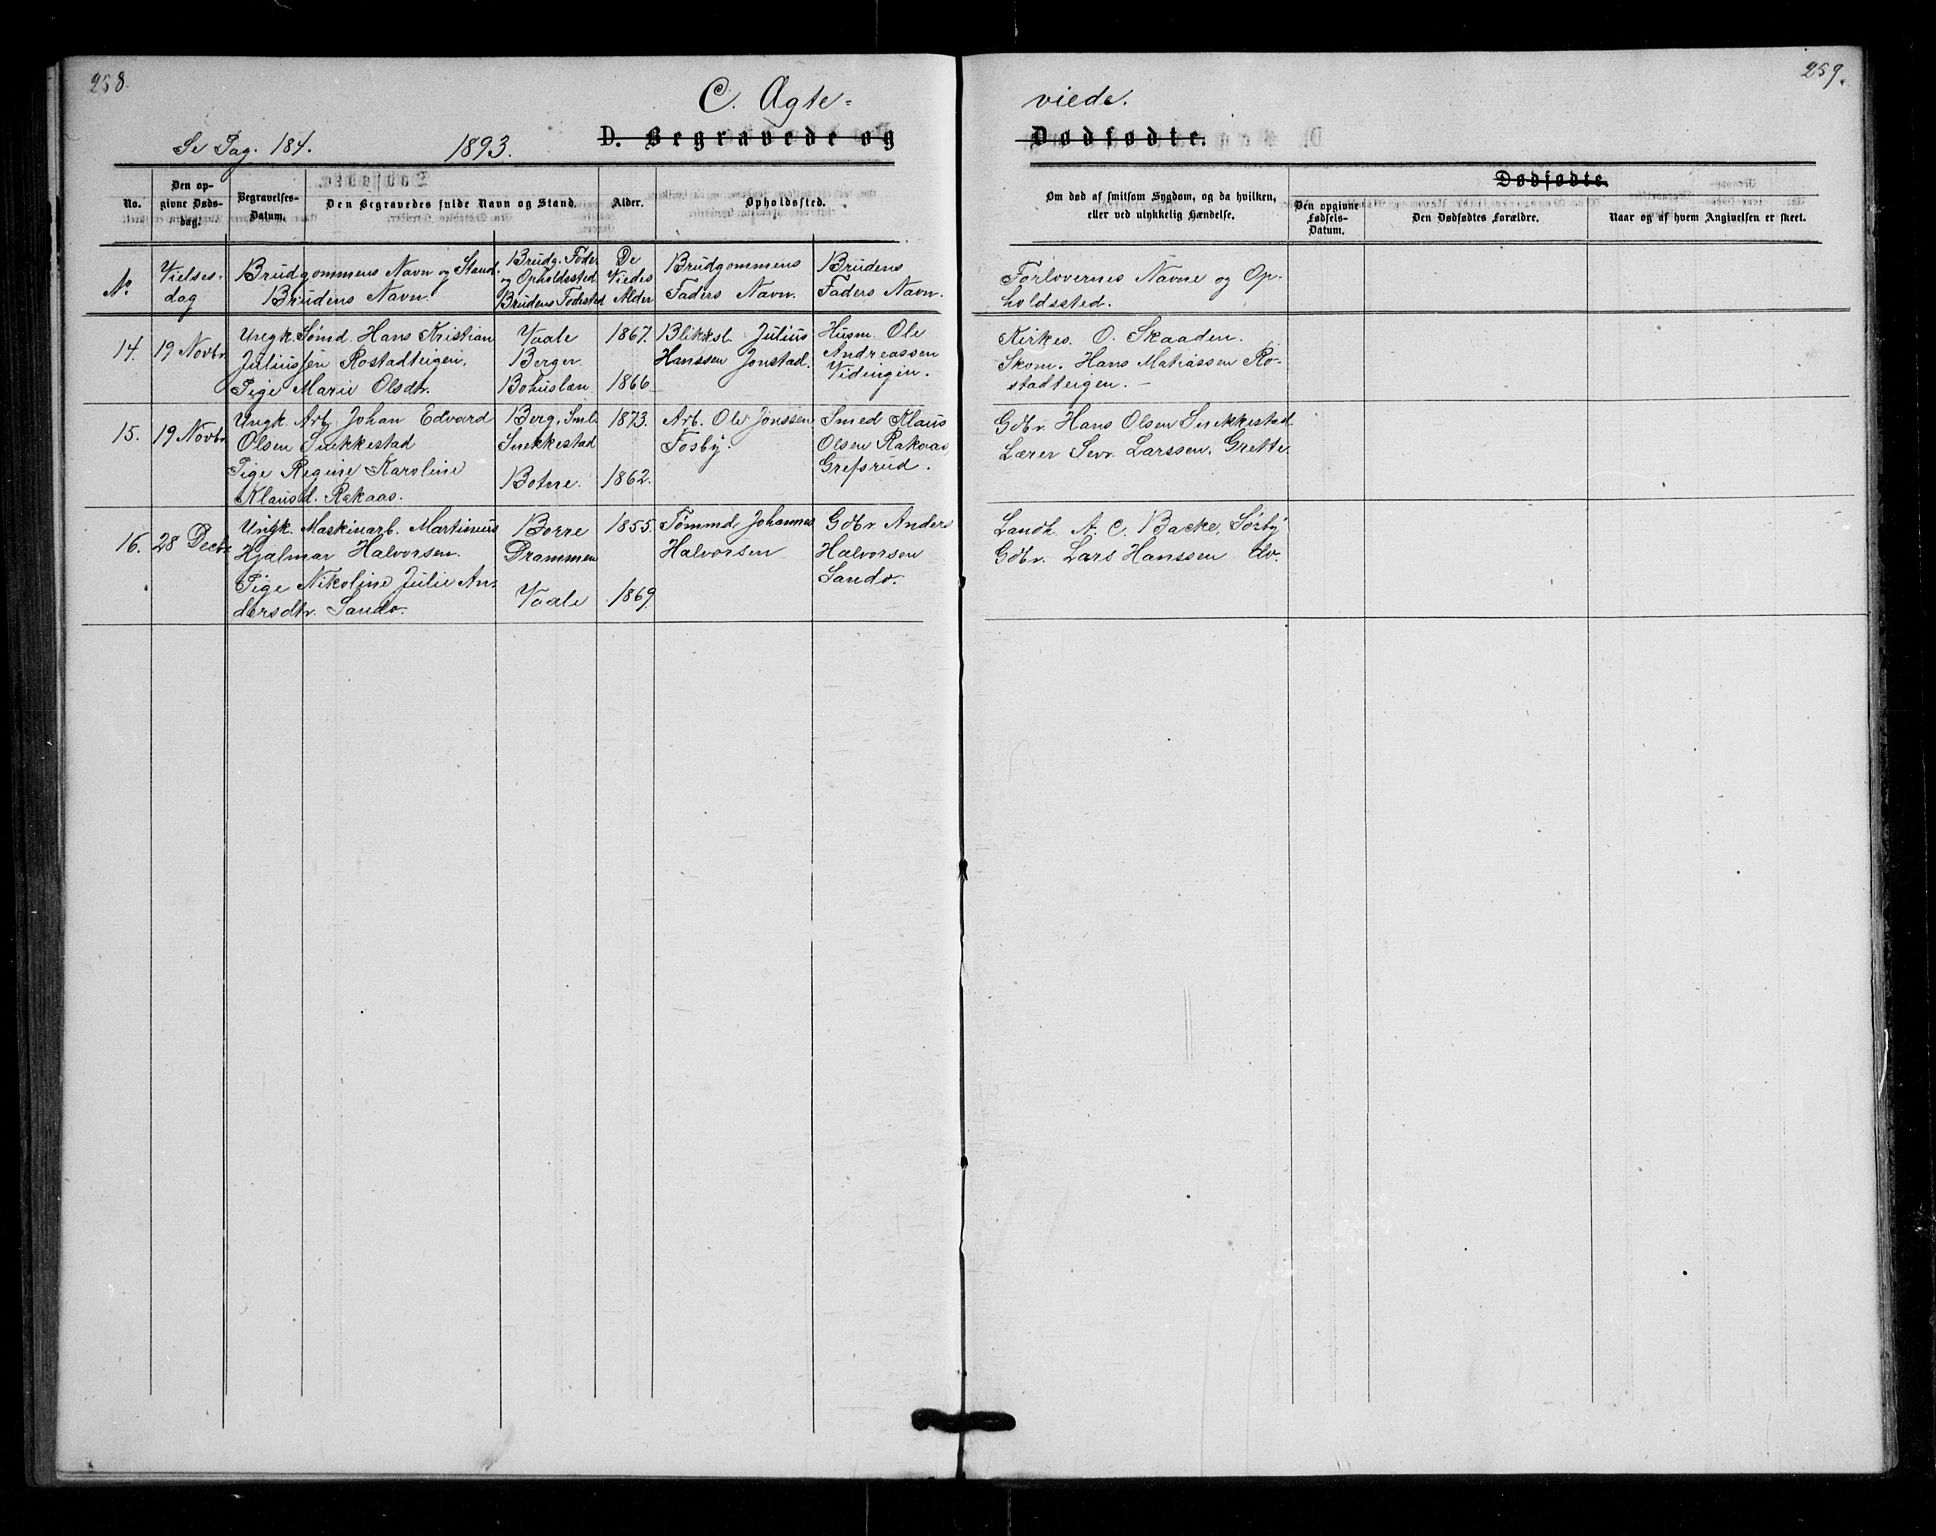 258.
259.
C. Ægte-
viede.
Se Pag. 184.
1893.
D. Begravede og
Dødfødte.
Dødfødte.
No.
Den op-
givne Døds-
dag.
Begravelses-
Datum.
Den Begravedes fulde Navn og Stand.
Alder.
Opholdssted.
Om død af smitsom Sygdom, og da hvilken,
eller ved ulykkelig Hændelse.
Den opgivne
Fødsels-
Datum.
Den Dødfødtes Forældre.
Naar og af hvem Angivelsen er skeet.
No
Vielses-
dag
Brudgommens Navn og Stand.
Brudens Navn.
Brudg. Føde-
og Opholdssted
Brudens Fødested
De
Viedes
Alder
Brudgommens
Faders Navn.
Brudens
Faders Navn.
Forlovernes Navne og Op-
holdssted.
14.
19 Novbr
Ungk. Sømd. Hans Kristian
Juliussen Rostadteigen.
Pige Marie Olsdtr.
Vaale
Berger
Bohuslæn
1867.
1866
Blikksl. Julius
Hanssen Jonstad.
Husm. Ole
Andreassen
Videngin.
Kirkes. O. Skaaden.
Skom. Hans Matiassen Ro-
stadteigen.
15.
19 Novbr
Ungk. Arb. Johan Edvard
Olsen Snekkestad
Pige Regine Karoline
Klausd. Rakaas.
Berg, Sml.
Snekkestad
Botne.
1873.
1862.
Arb. Ole Jonssen
Fosby.
Smed Klaus
Olsen Rakaas,
Grefsrud.
Gdbr. Hans Olsen Snekkestad
Lærer Sevr. Larssen, Grette.
16.
28 Decbr
Ungk. Maskinarb. Martinius
Hjalmar Halvorsen.
Pige Nikoline Julie An-
dersdtr. Sando.
Borre
Drammen
Vaale
1855.
1869.
Tømmd. Johannes
Halvorsen
Gdbr. Anders
Halvorsen
Sando.
Landh. A. C. Backe, Sørby
Gdbr. Lars Hanssen do.